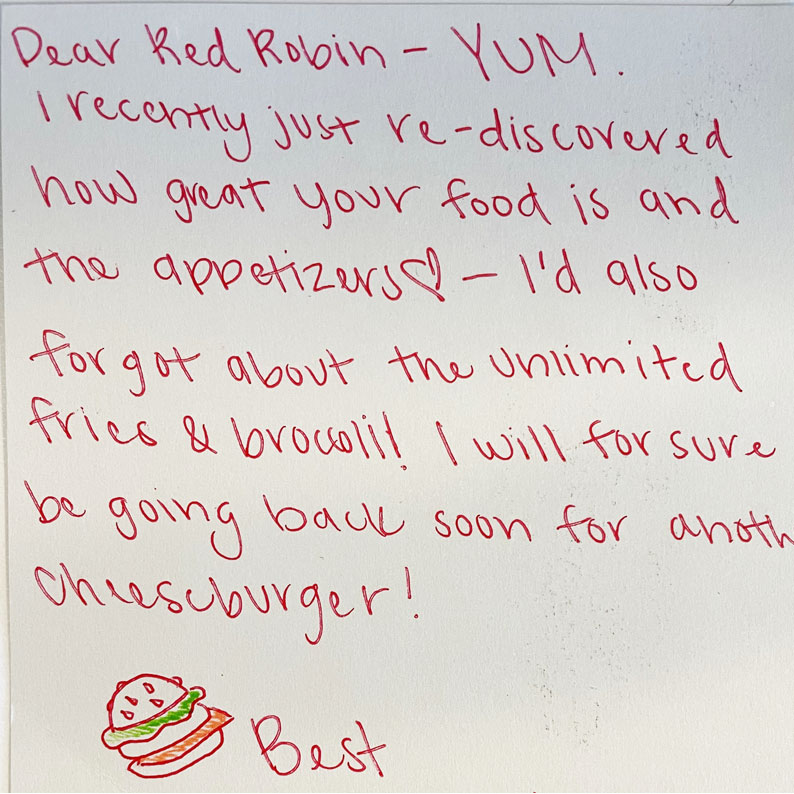 Dear Red Robin – YUM.
I recently just re-discovered
how great your food is and
the appetizers♡ – I'd also
forgot about the unlimited
fries & broccoli! I will for sure
be going back soon for anoth
cheeseburger!
Best